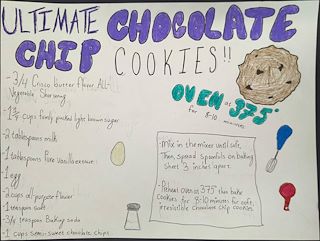 ULTIMATE CHOCOLATE
CHIP COOKIES!!
OVEN at 375°
for
8-10 minutes
-3/4 Crisco butter flavor ALL-
Vegetable Shortening
-1 1/4 cups firmly packed light brown sugar
-2 tablespoons milk
-1 tablespoons Pure Vanilla extract
-1 egg
-2 cups all-purpose flour
-1 teaspoon salt
-3/4 teaspoon Baking soda
-1 cups semi-sweet chocolate chips
-Mix in the mixer until soft.
Then, spread spoonfuls on baking
sheet 3 inches apart.
-Preheat oven at 375° then bake
cookies for 8-10 minutes for soft,
irresistible chocolate chip cookies.